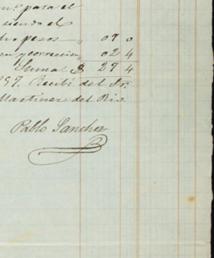 para el
siendo el
pesos " 09 0
en y correccion " 02 4
Suma $ 27 4
Recibí del Sr.
Martinez del Rio
Pablo Sanchez